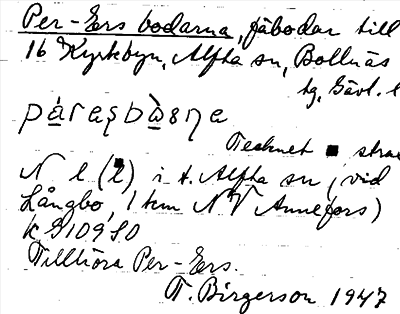 Per-Ers bodarna, fäbodar till
16 Kyrkbyn, Alfta sn, Bollnäs
tg, Gävl. l
Tecknet ■ strax
N l (l) i t. Alfta sn (vid
Långbo, 1 km NV Annefors)
K G 109 S0
Tillhöra Per-Ers.
T. Birgerson 1947